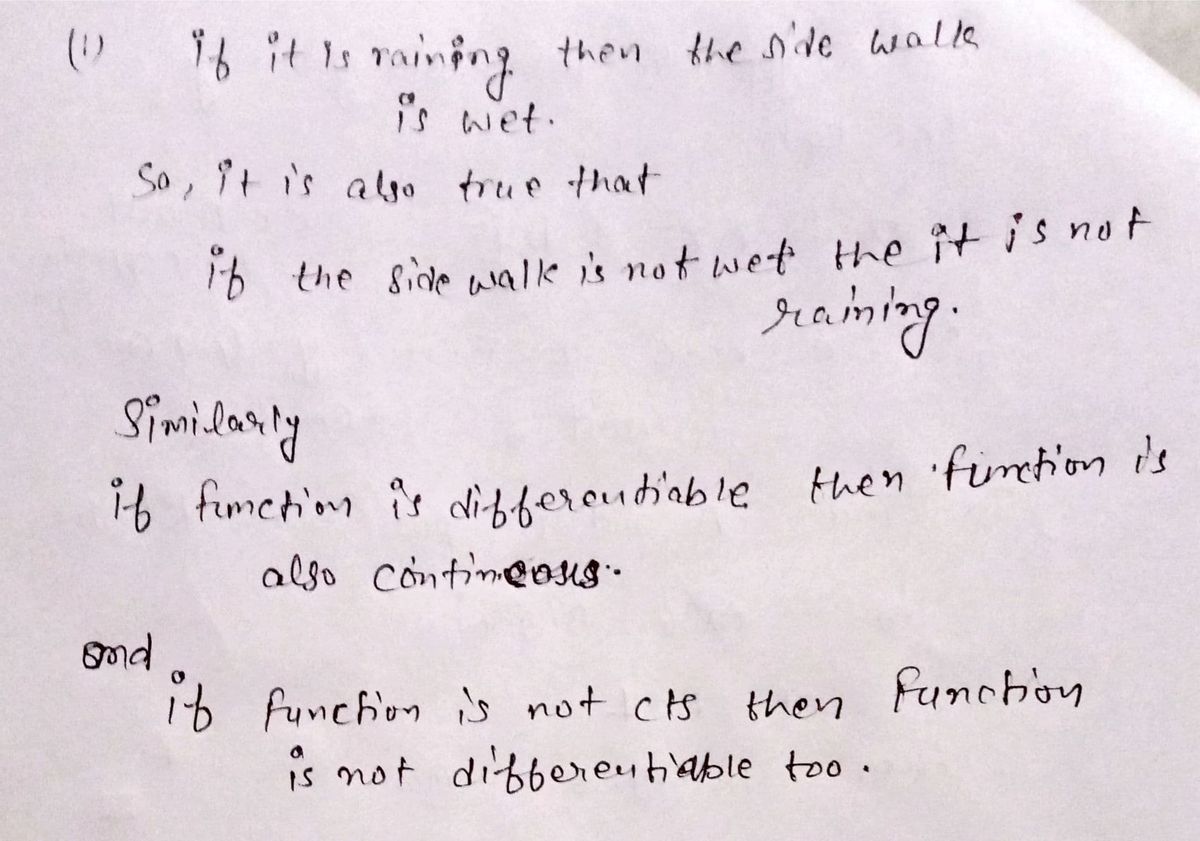 (i) if it is raining then the side walk
is wet.
So, it is also true that
if the side walk is not wet the it is not
raining.
Similarly
if function is differentiable then function is
also contineous.
and
if function is not cts then function
is not differentiable too.